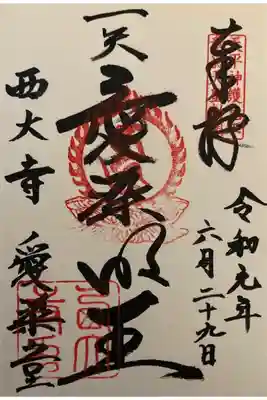 奉拝
令和元年
六月二十九日
愛染明王
西大寺
愛染堂